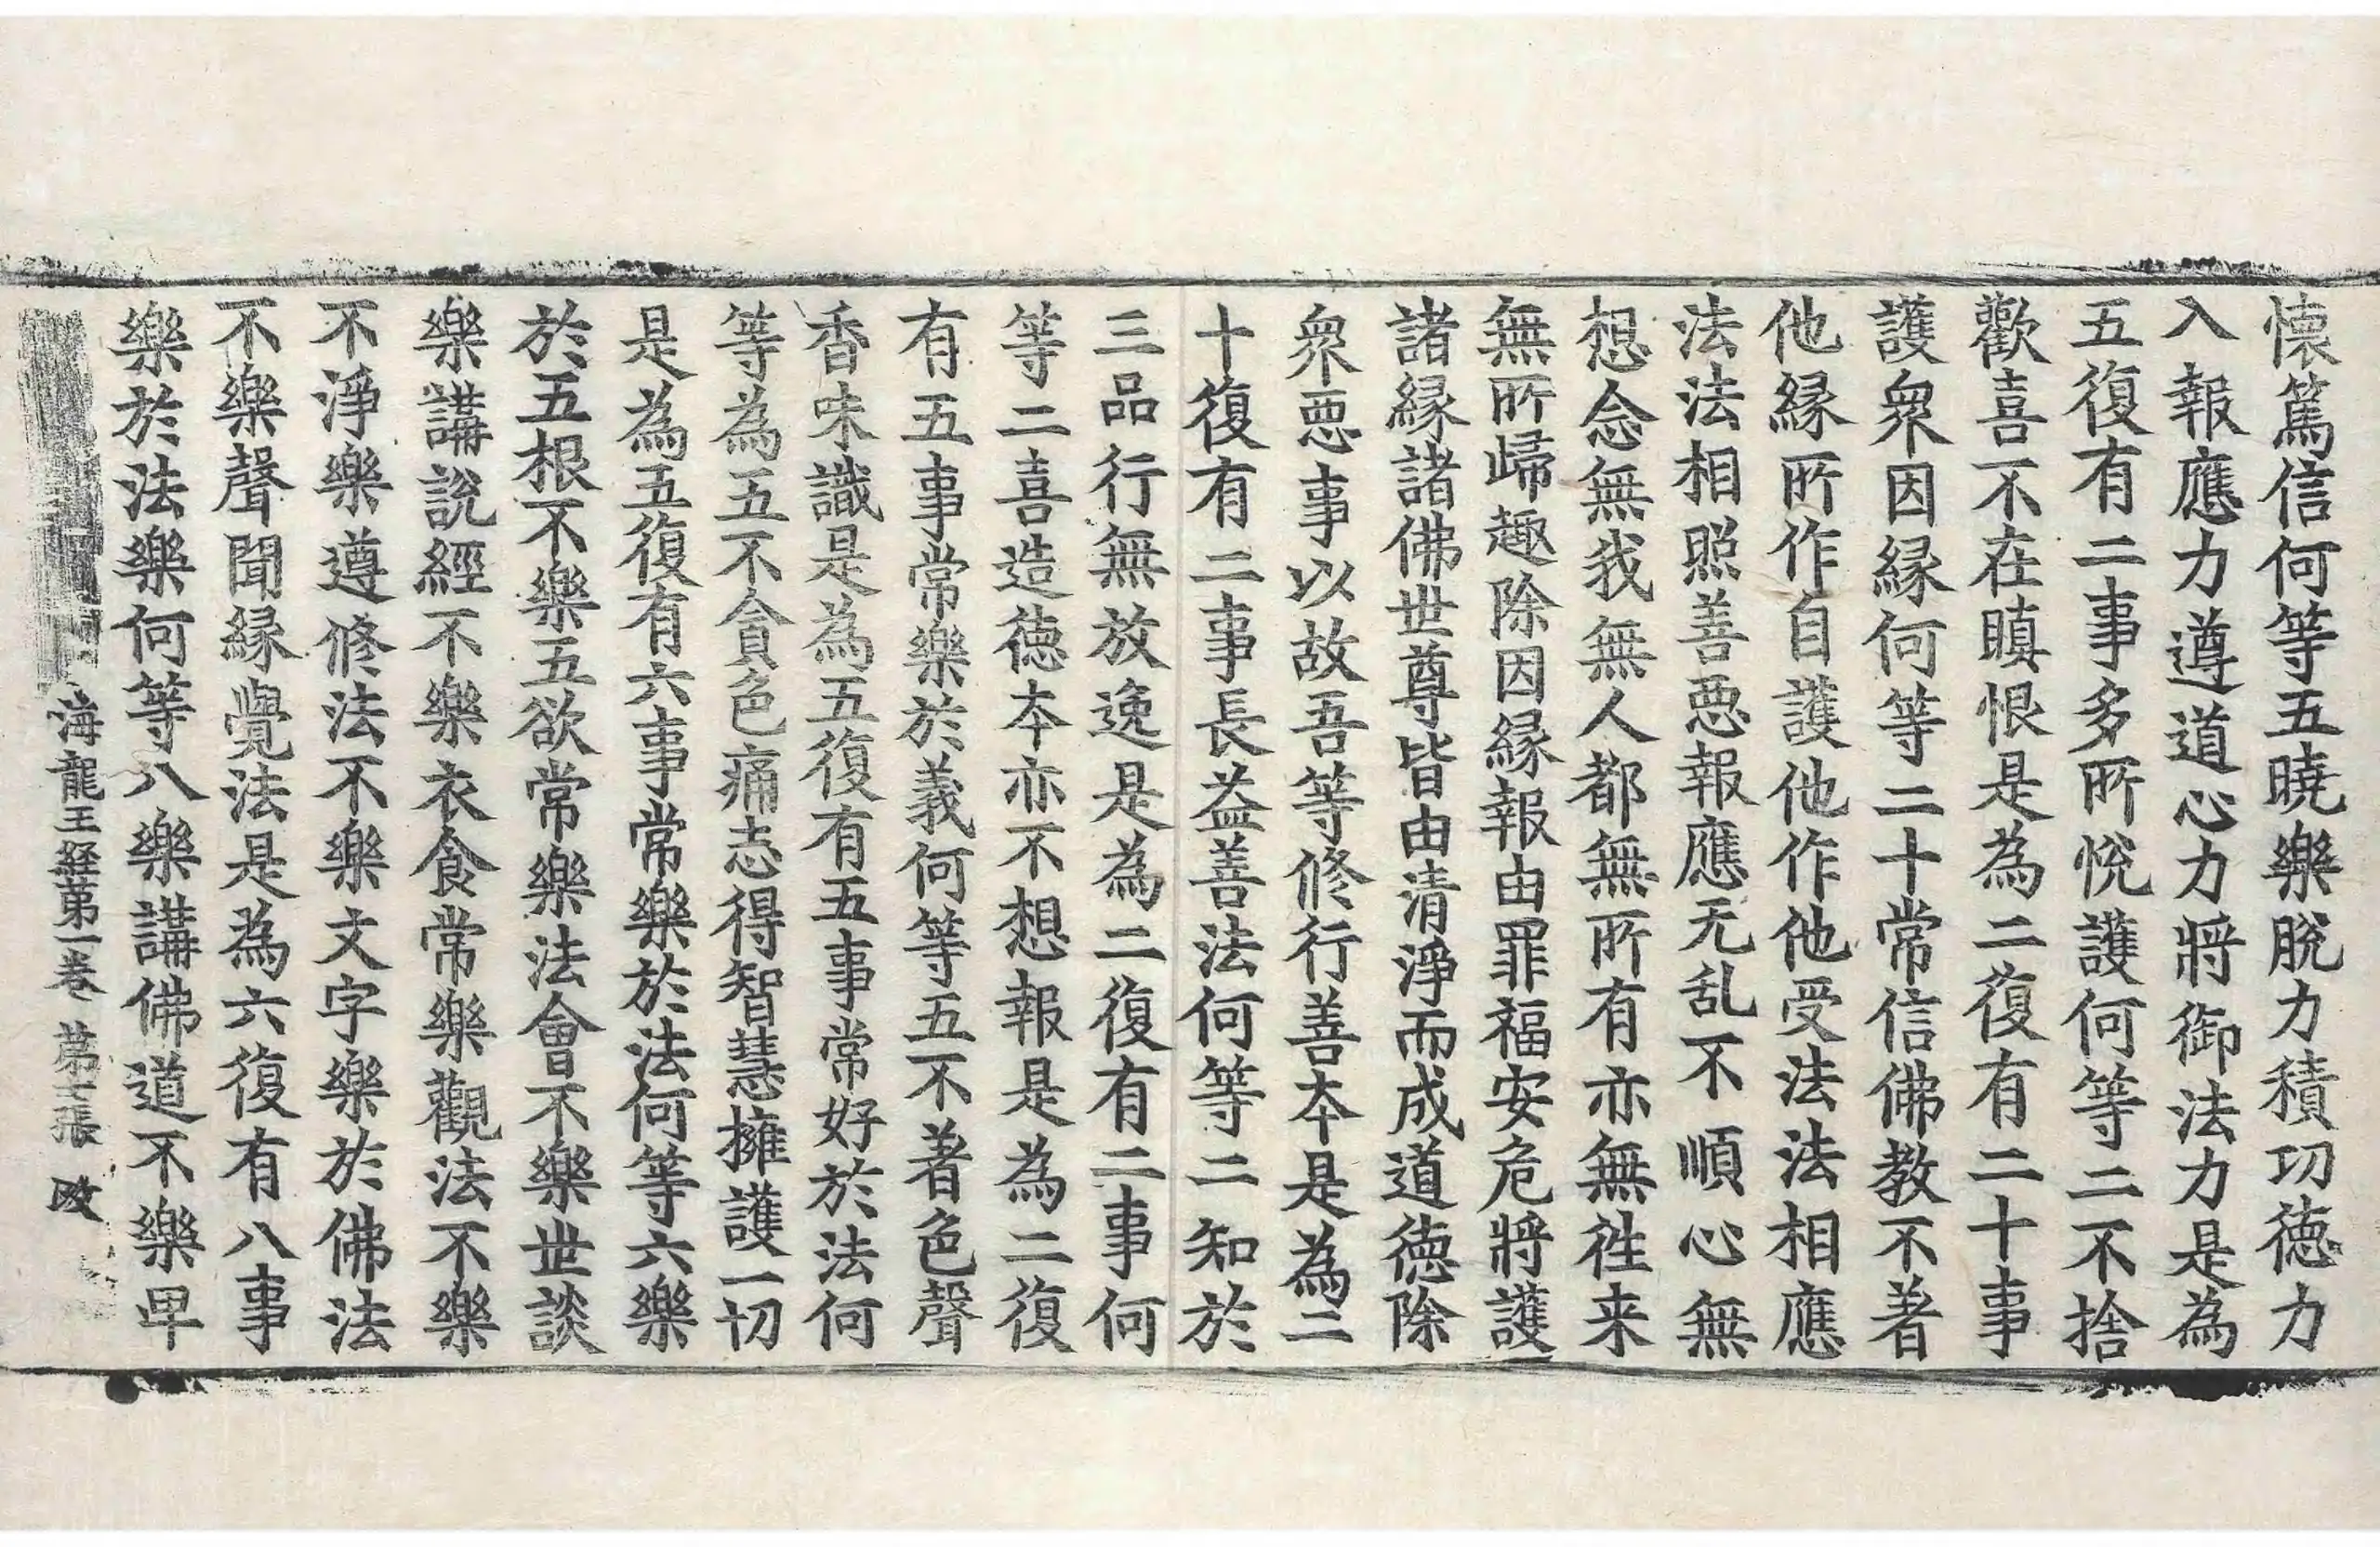 懷篤信何等五曉樂脫力積功德力
入報應力遵道心力將御法力是為
五復有二事多所悅護何等二不捨
歡喜不在瞋恨是為二復有二十事
護衆因緣何等二十常信佛教不著
他緣所作自護他作他受法法相應
法法相照善惡報應无乱不順心無
想念無我無人都無所有亦無徃来
無所歸趣除因緣報由罪福安危將護
諸緣諸佛世尊皆由清淨而成道德除
衆惡事以故吾等修行善本是為二
十復有二事長益善法何等二知於
三品行無放逸是為二復有二事何
等二喜造德本亦不想報是為二復
有五事常樂於義何等五不著色聲
香味識是為五復有五事常好於法何
等為五不貪色痛志得智慧擁護一切
是為五復有六事常樂於法何等六樂
於五根不樂五欲常樂法會不樂世談
樂講說經不樂衣食常樂觀法不樂
不淨樂遵修法不樂文字樂於佛法
不樂聲聞緣覺法是為六復有八事
樂於法樂何等八樂講佛道不樂卑
海龍王経第一卷 第七張